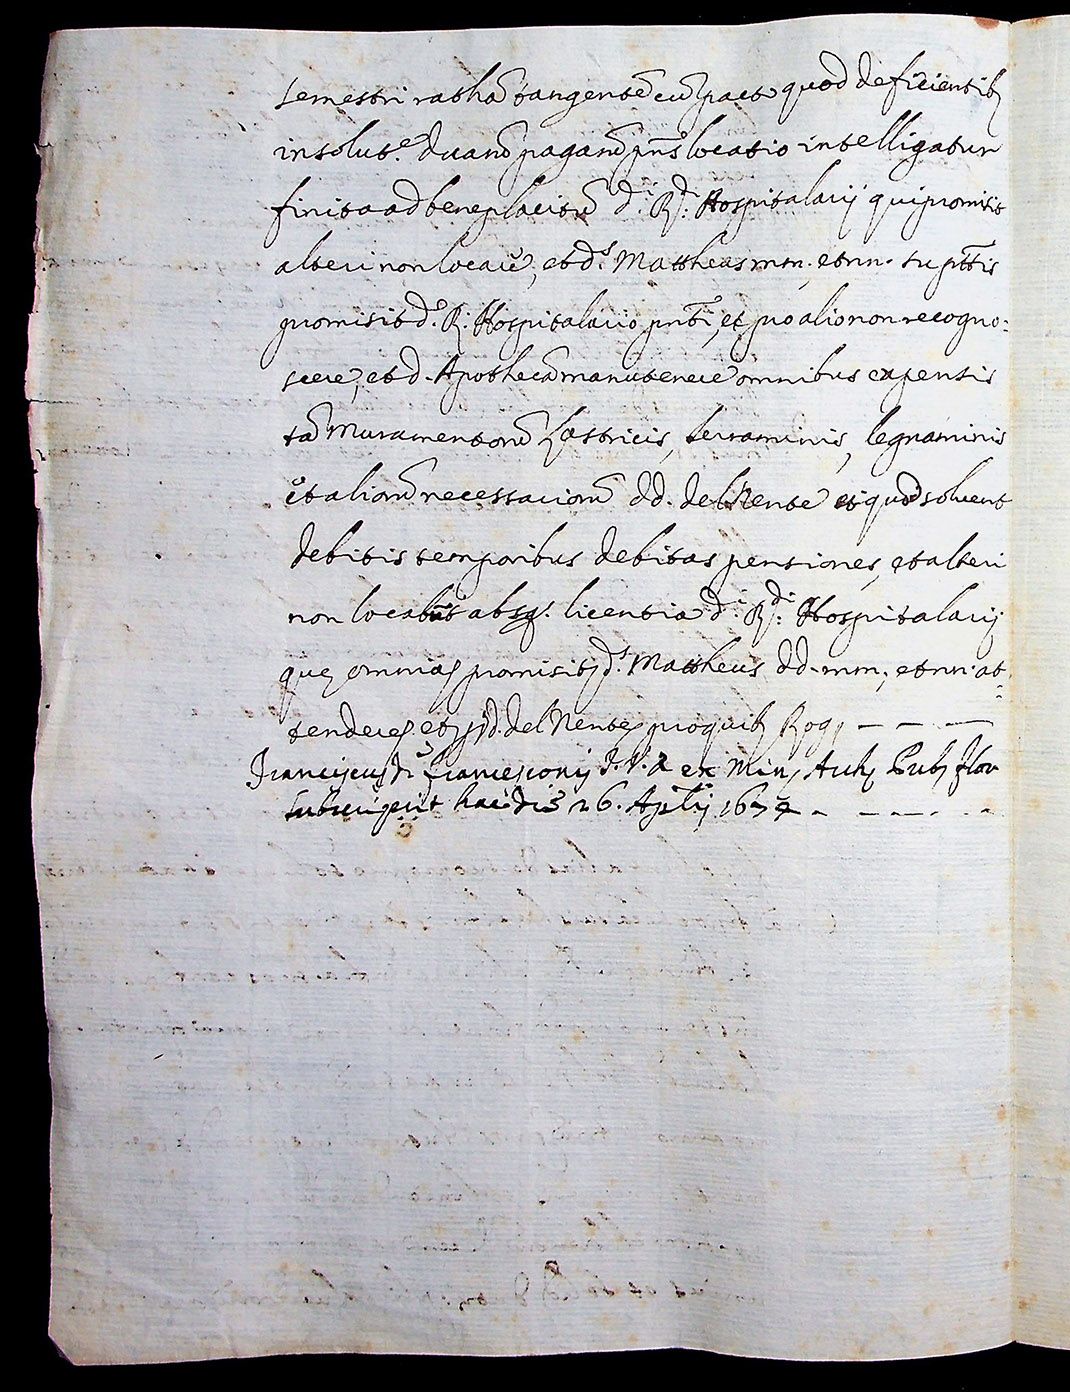 semestri rathā tangentē cū pacto quod deficientib⁹
in solut.e duarū pagarū pn̄s locatio intelligatur
finita ad beneplacitū d.i R.di Hospitalarij qui promisit
alteri non locare, et d.s Mattheus mm. et nn. supttis
promisit d.o R. Hospitalario pnti, et pro alio non recogno:
scere, et d. Apothecā manutenere omnibus expensis
tā Muramentorū Lastricis, terraminis, legnaminis
et aliorū necessariorū dd. del Nente et quod solvent
debitis temporibus debitas pensiones, et alteri
non locabūt absq. licentia d.i R.di Hospitalarij
que omnia promisit d.s Mattheus dd. mm. et nn. at:
tendere et dd. del Nente pro quib⁹ Rog. — — —
Franciscus Franciesconij I.V.D. ex Min. Arch. Pub. Flor
subscripsit hac die 26. Aplis 167